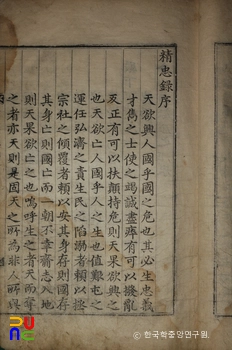 精忠録序
天欲興人國乎國之危也其必生忠義
才雋之士使之竭誠盡瘁有可以撥亂
反正有可以扶顛持危則天果欲興之
也天欲亡人國乎人之生也值艱屯之
運任弘濟之責生民之陷溺者賴以拯
宗社之傾覆者賴以安其身存則國存
其身亡則國亡而一朝不幸齎志入地
則天果欲亡之也嗚呼生之者天而奪
之者亦天則是固天之所為非人所與
한국학중앙연구원